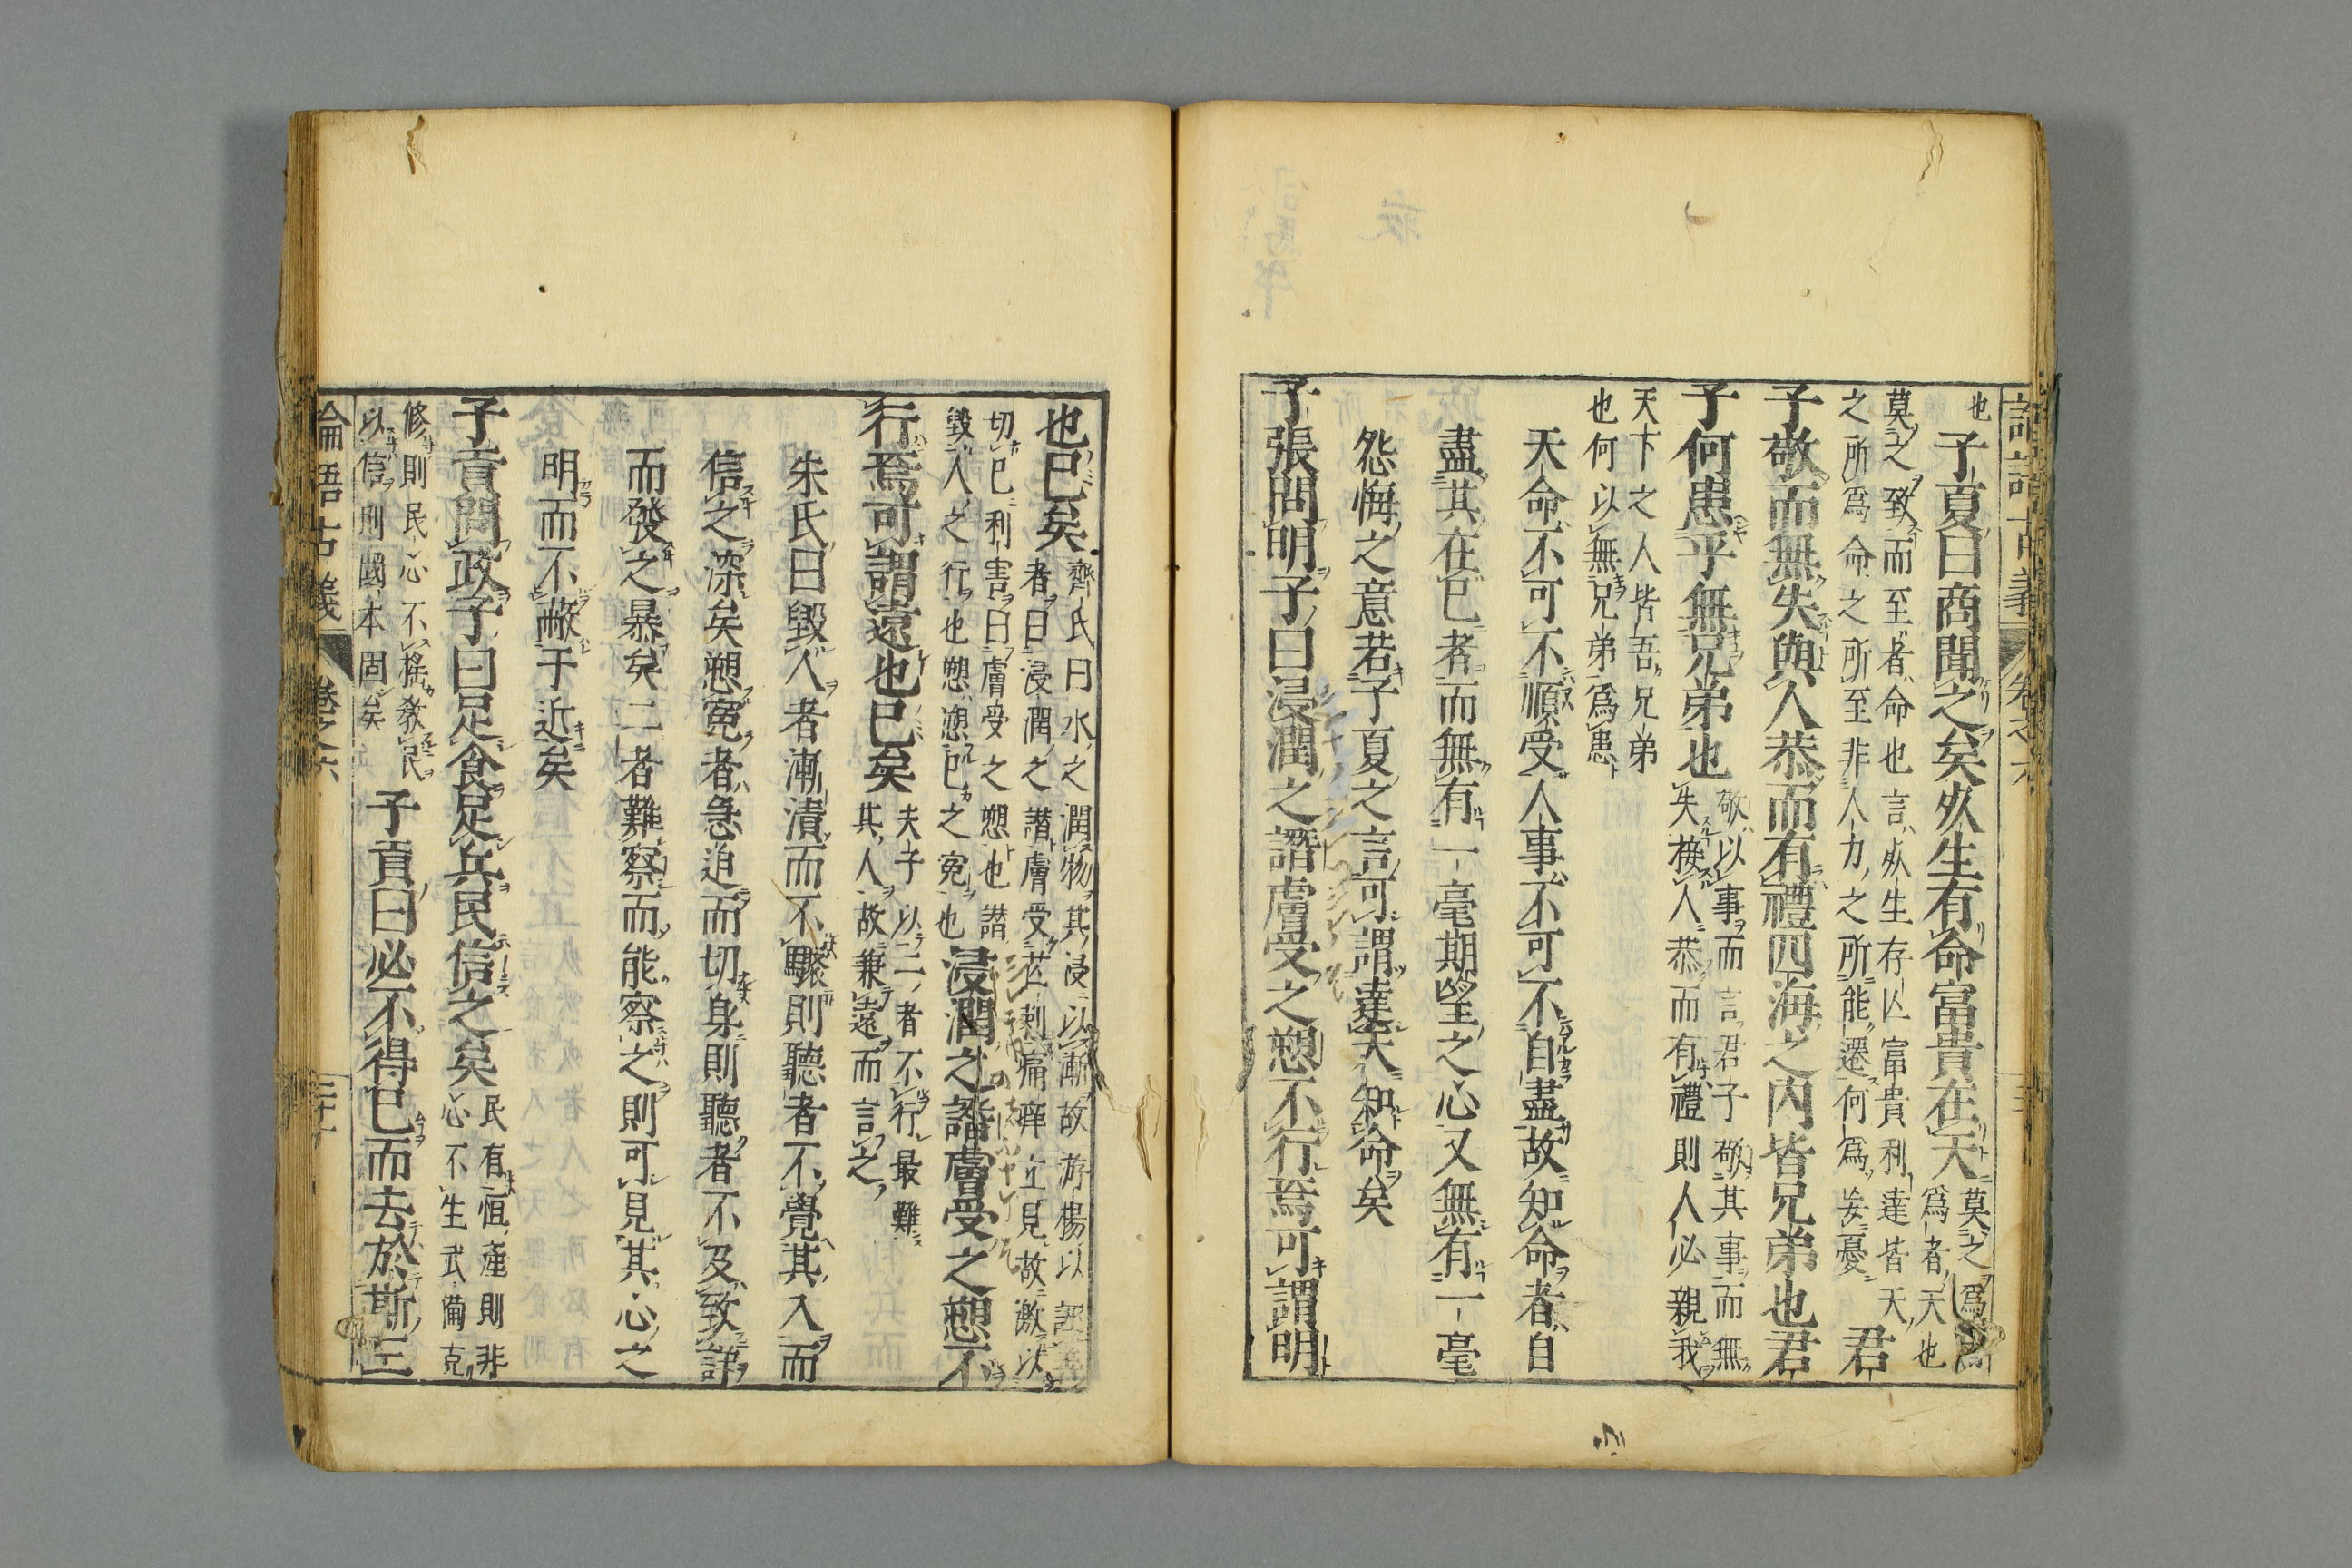 也子夏曰商聞之矣死生有命富貴在天莫之
爲者天也
莫之致而至者命也言死生存亡富貴利達皆天
之所爲命之所至非人力之所能遷何爲妄憂君
子敬而無失與人恭而有禮四海之内皆兄弟也君
子何患乎無兄弟也敬以事而言君子敬其事而無
失接人恭而有禮則人必親我
天下之人皆吾兄弟
也何以無兄弟爲患
天命不可不順受人事不可不自盡故知命者自
盡其在已者而無有一毫期望之心又無有一毫
怨悔之意若子夏之言可謂達天知命矣
子張問明子曰浸潤之譖膚受之愬不行焉可謂明
也已矣齊氏曰水之潤物其浸以漸故游楊以
者曰浸潤之譖膚受芒刺痛痒立見故激以
切已利害曰膚受之愬也譖
毀人之行也愬愬已之寃也浸潤之譖膚受之愬不
行焉可謂遠也已矣夫子以二者不行最難
其人故兼遠而言之
朱氏曰毀人者漸漬而不驟則聽者不覺其入而
信之深矣愬寃者急迫而切身則聽者不及致詳
而發之暴矣二者難察而能察之則可見其心之
明而不蔽于近矣
子貢問政子曰足食足兵民信之矣民有恒產則非
心不生武備克
修則民心不搖敎民
以信則國本固矣子貢曰必不得已而去於斯三
論語古義
卷之六